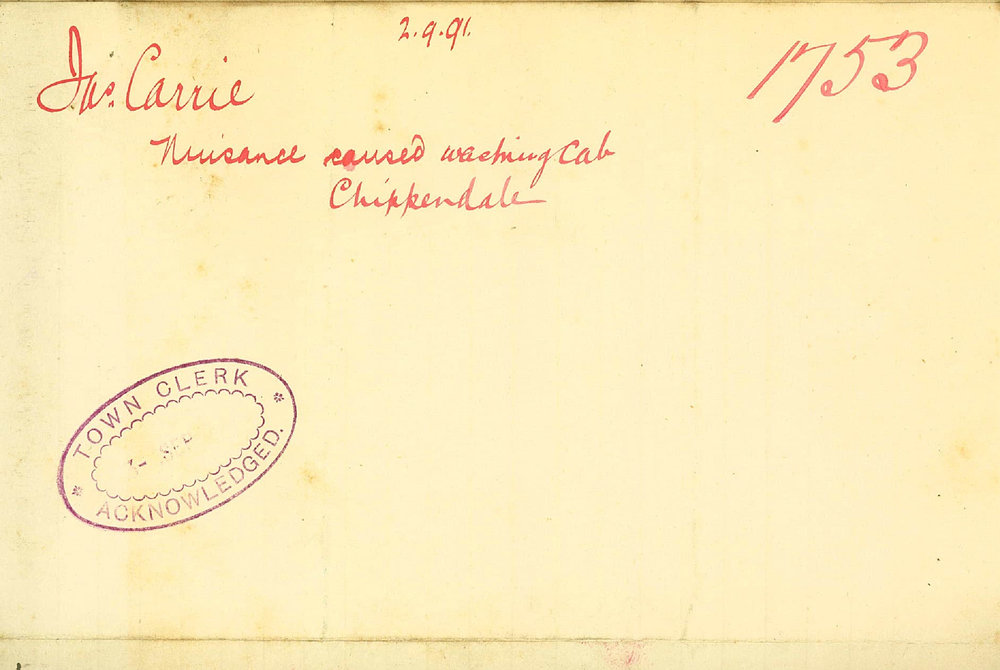 2.9.91.
Jas. Carrie
1753
Nuisance caused washing Cab
Chippendale
TOWN CLERK
ACKNOWLEDGED.